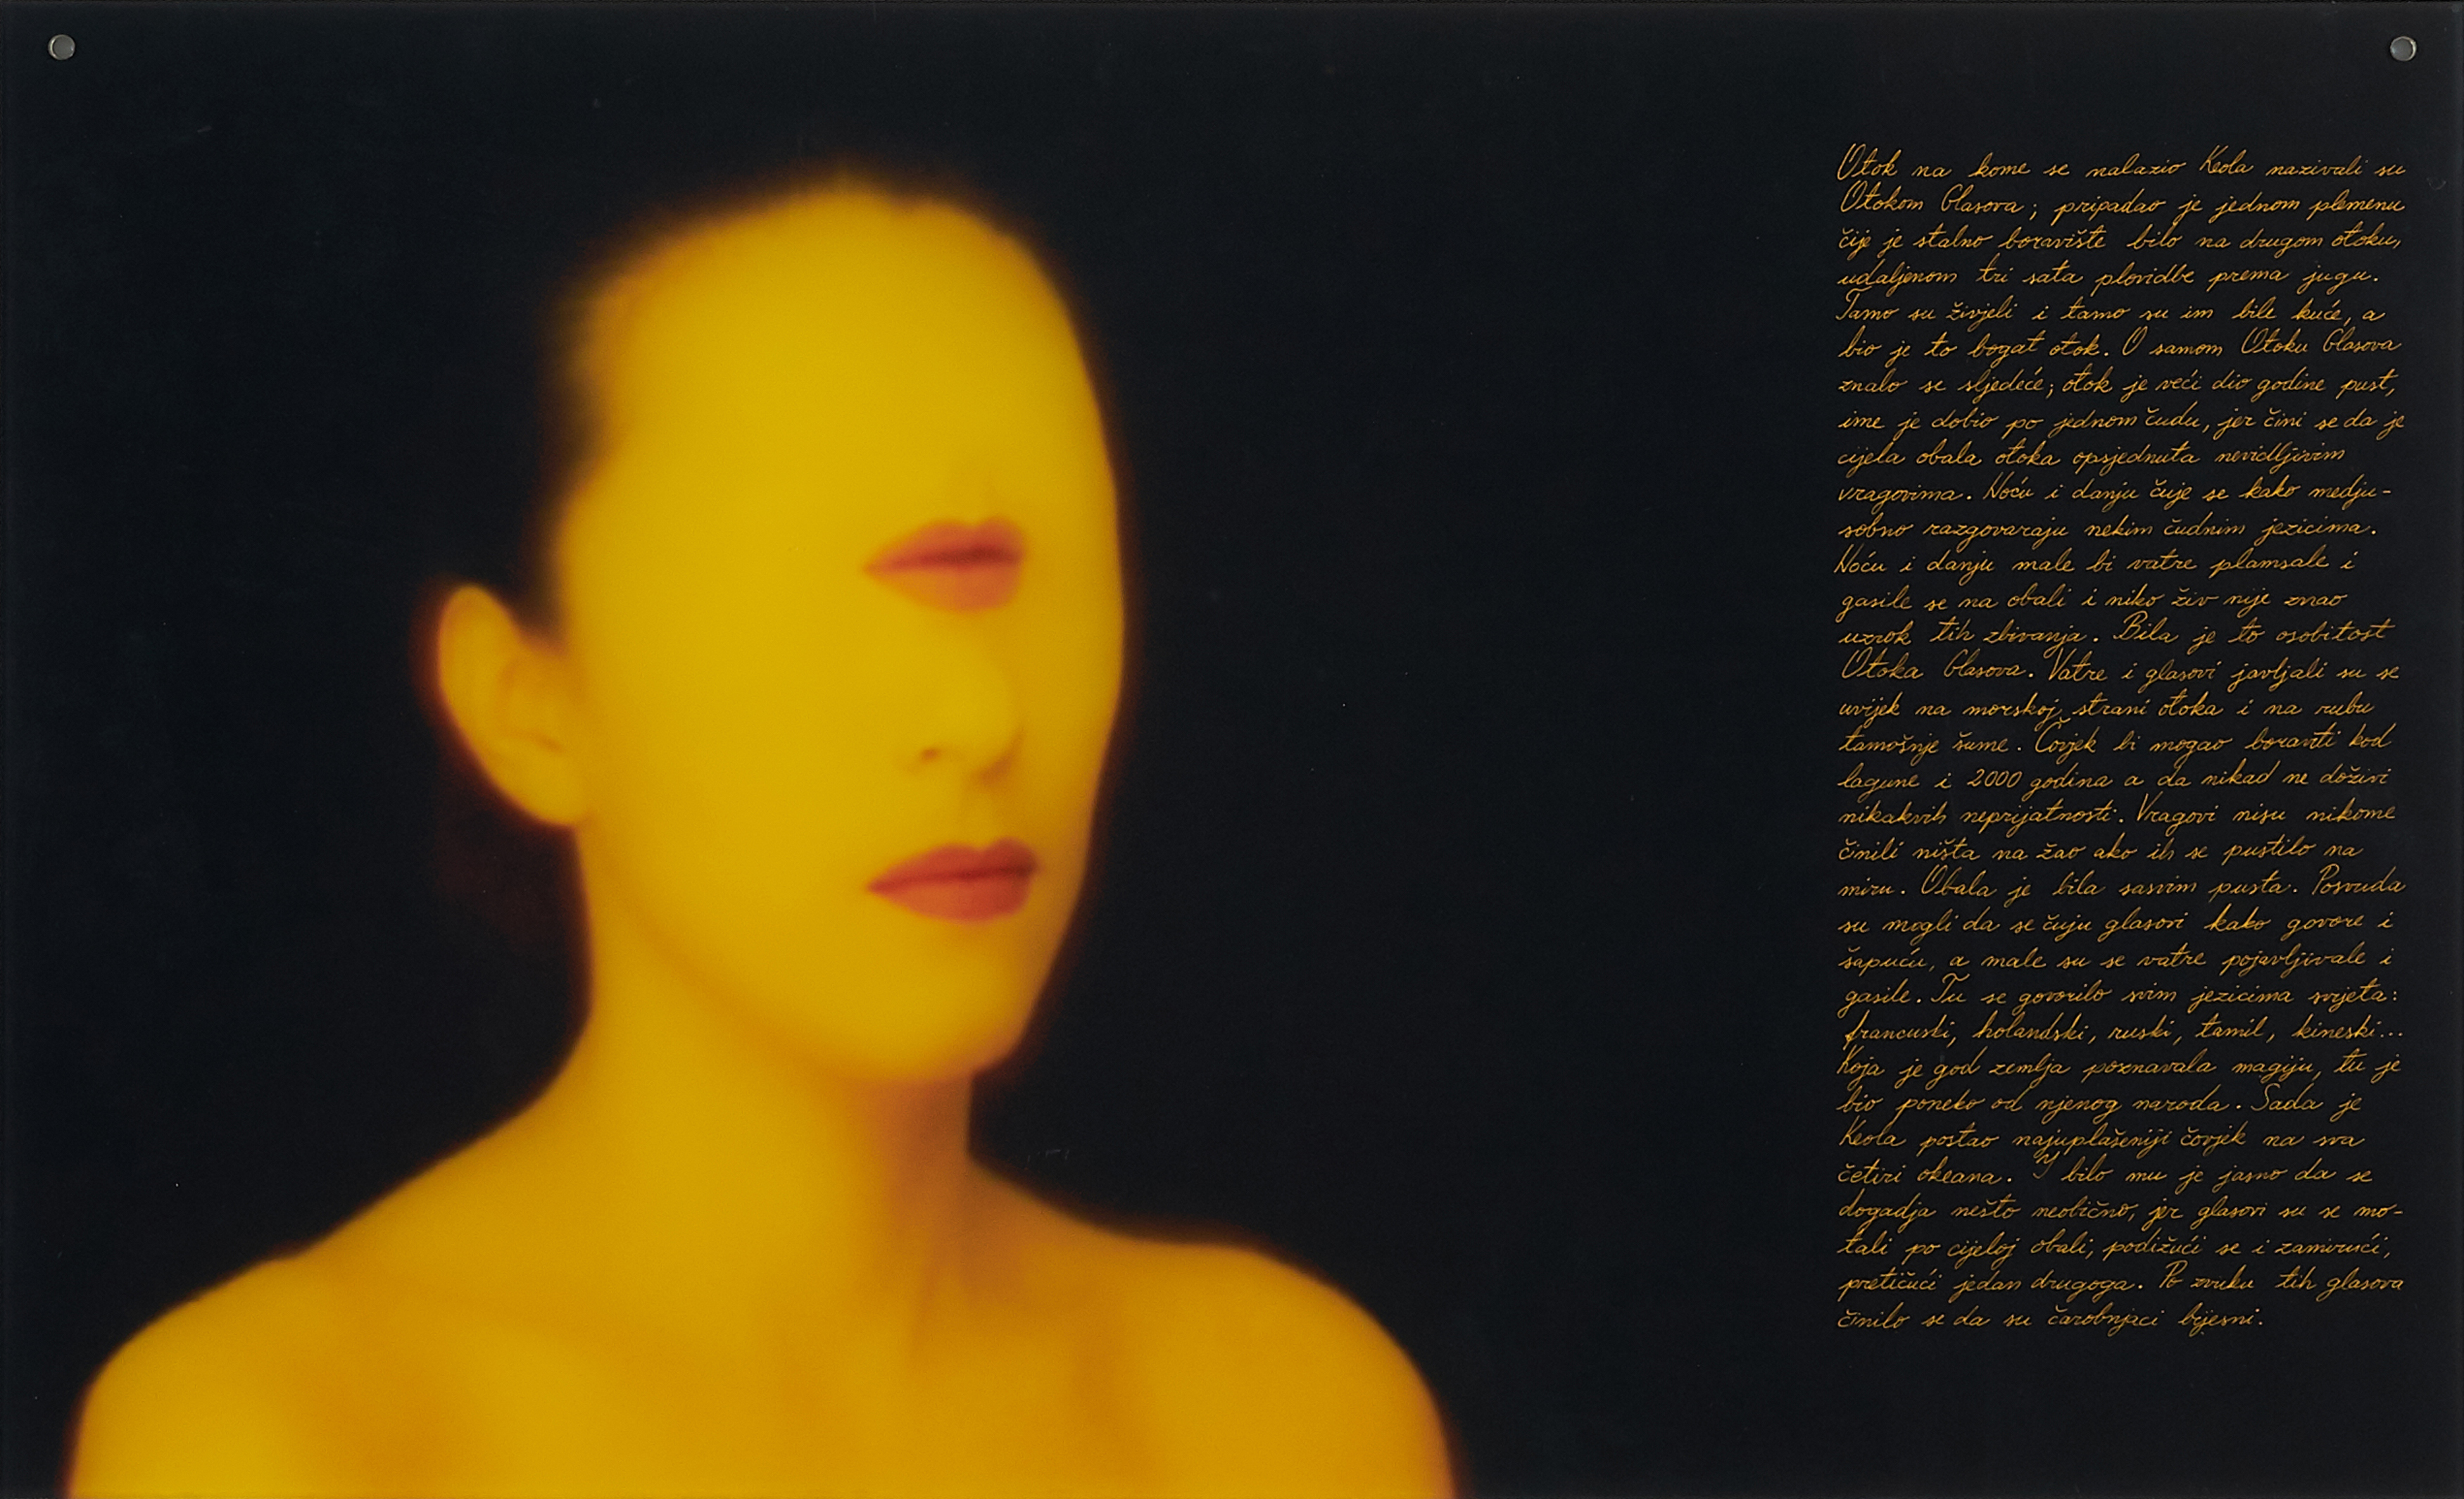 Otok na kome se nalazio Keola nazivali su
Otokom Glasova; pripadao je jednom plemenu
čije je stalno boravište bilo na drugom otoku,
udaljenom tri sata plovidbe prema jugu.
Tamo su živjeli i tamo su im bile kuće, a
bio je to bogat otok. O samom Otoku Glasova
znalo se sljedeće; otok je veći dio godine pust,
ime je dobio po jednom čudu, jer čini se da je
cijela obala otoka opsjednuta nevidljivim
vragovima. Noću i danju čuje se kako medju-
sobno razgovaraju nekim čudnim jezicima.
Noću i danju male bi vatre plamsale i
gasile se na obali i niko živ nije znao
uzrok tih zbivanja. Bila je to osobitost
Otoka Glasova. Vatre i glasovi javljali su se
uvijek na morskoj strani otoka i na rubu
tamošnje šume. Čovjek bi mogao boraviti kod
lagune i 2000 godina a da nikad ne doživi
nikakvih neprijatnosti. Vragovi nisu nikome
činili ništa na žao ako ih se pustilo na
miru. Obala je bila sasvim pusta. Posvuda
su mogli da se čuju glasovi kako govore i
šapuću, a male su se vatre pojavljivale i
gasile. Tu se govorilo svim jezicima svijeta:
francuski, holandski, ruski, tamil, kineski...
Koja je god zemlja poznavala magiju, tu je
bio poneko od njenog naroda. Sada je
Keola postao najuplašeniji čovjek na sva
četiri okeana. I bilo mu je jasno da se
dogadja nešto neobično, jer glasovi su se mo-
tali po cijeloj obali, podižući se i zamirući,
pretičući jedan drugoga. Po zvuku tih glasova
činilo se da su čarobnjaci bijesni.